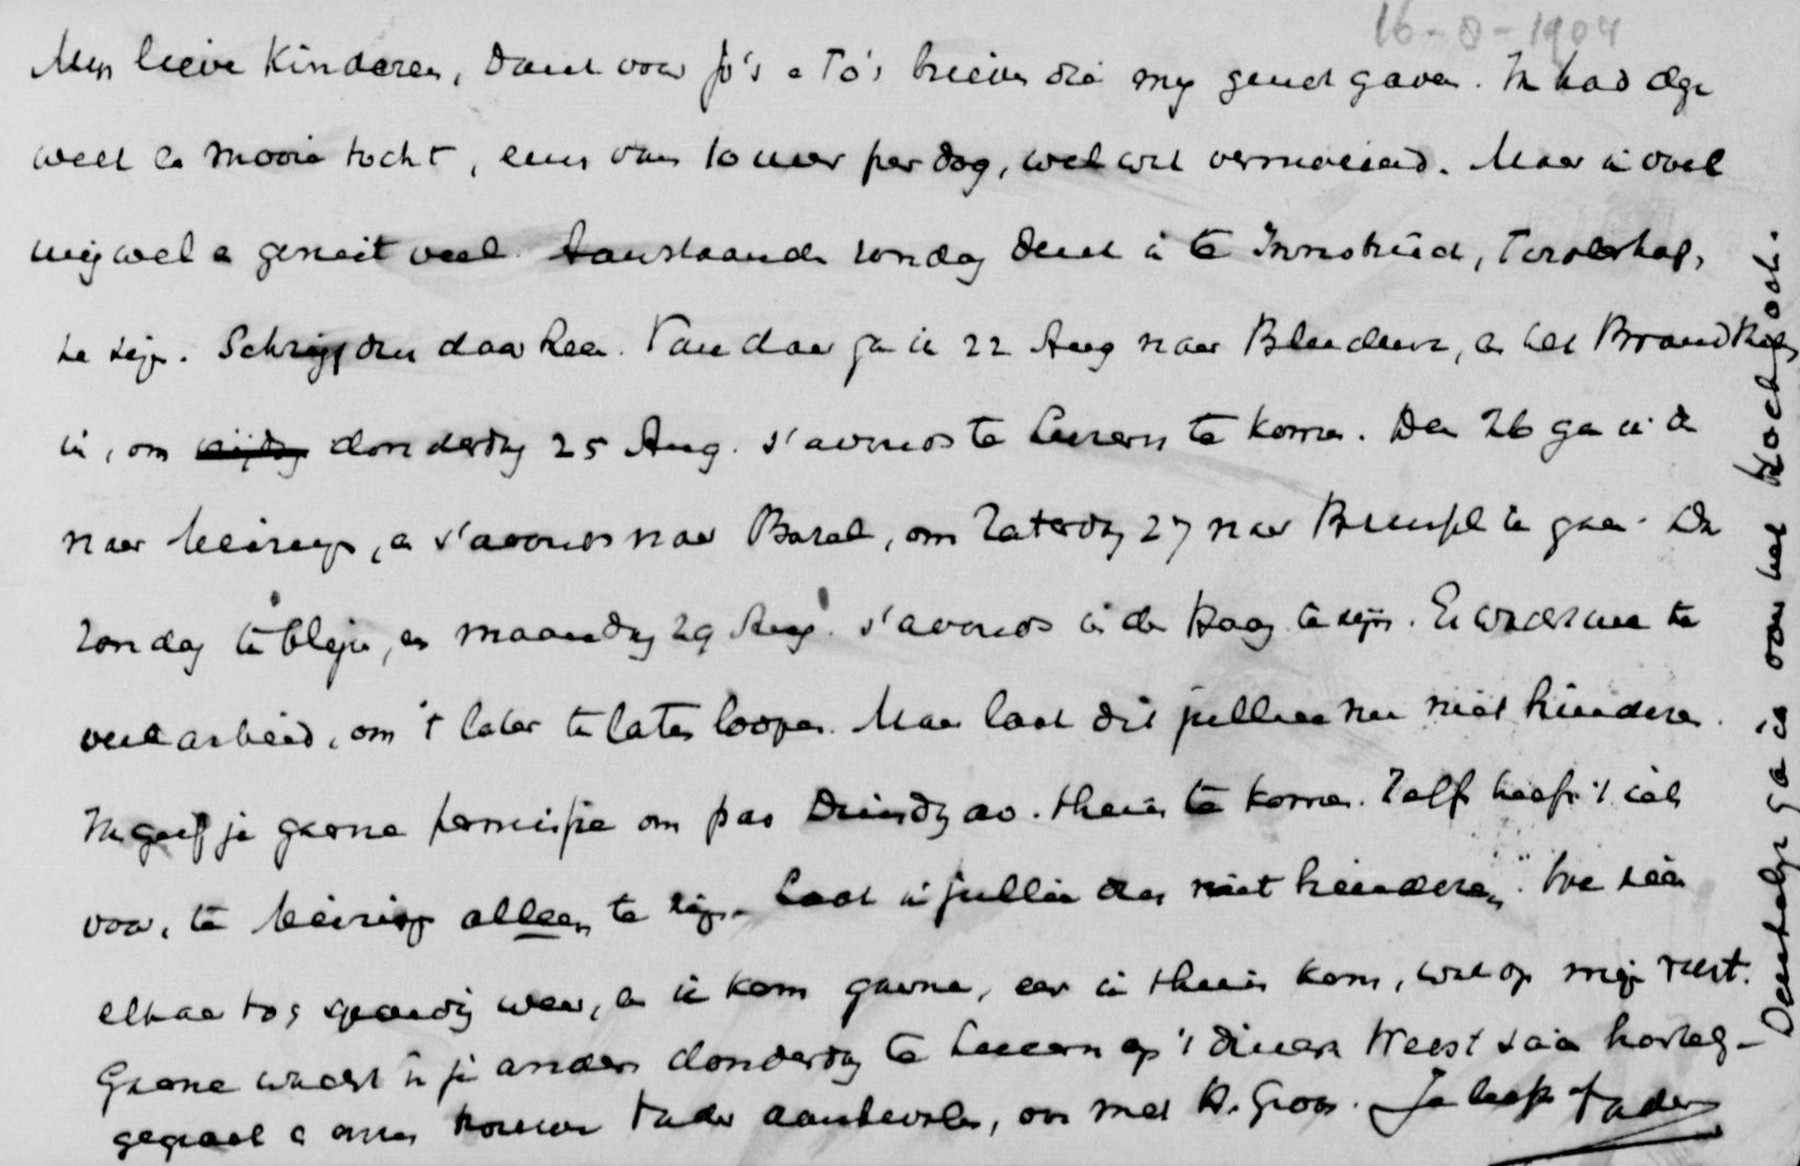 16-8-1904
Mijn lieve Kinderen, Dank voor Jo's e To's brieven die mij genot gaven. Ik had deze
week een mooie tocht, eens van 10 uur per dag, wel wat vermoeiend. Maar ik voel
mij wel e geniet veel. Aanstaande zondag denk ik te Innsbrück, Tirolerhof,
te zijn. Schrijf dus daarheen. Van daar ga ik 22 Aug naar Bludenz, en het Brandthal
in, om donderdag 25 Aug. s'avonds te Luzern te komen. Den 26 ga ik dan
naar Meiringen, en s'avonds naar Bazel, om Zaterdag 27 naar Brussel te gaan. Da
zondag te blijven, en maandag 29 Aug. s'avonds in den Haag te zijn. Er wacht me te
veel arbeid, om 't later te laten loopen. Maar laat dit jullie nu niet hinderen.
Ik geef je gaarne permissie om pas Dinsdag av. thuis te komen. Zelf heeft 't iets
voor, te Meiringen alleen te zijn. Laat ik jullie dus niet hinderen. We zien
elkaar tog spoedig weer, en ik kom gaarne, eer ik thuis kom, wat op mijn rust.
Gaarne wacht ik je anders donderdag te Luzern op 't diner. Weest zeer hartelijk
gegroet e onzen trouwen Vader aanbevolen, ook met H. Groos. Je liefh Vader
Dinsdag ga ik over het Hochjoch.